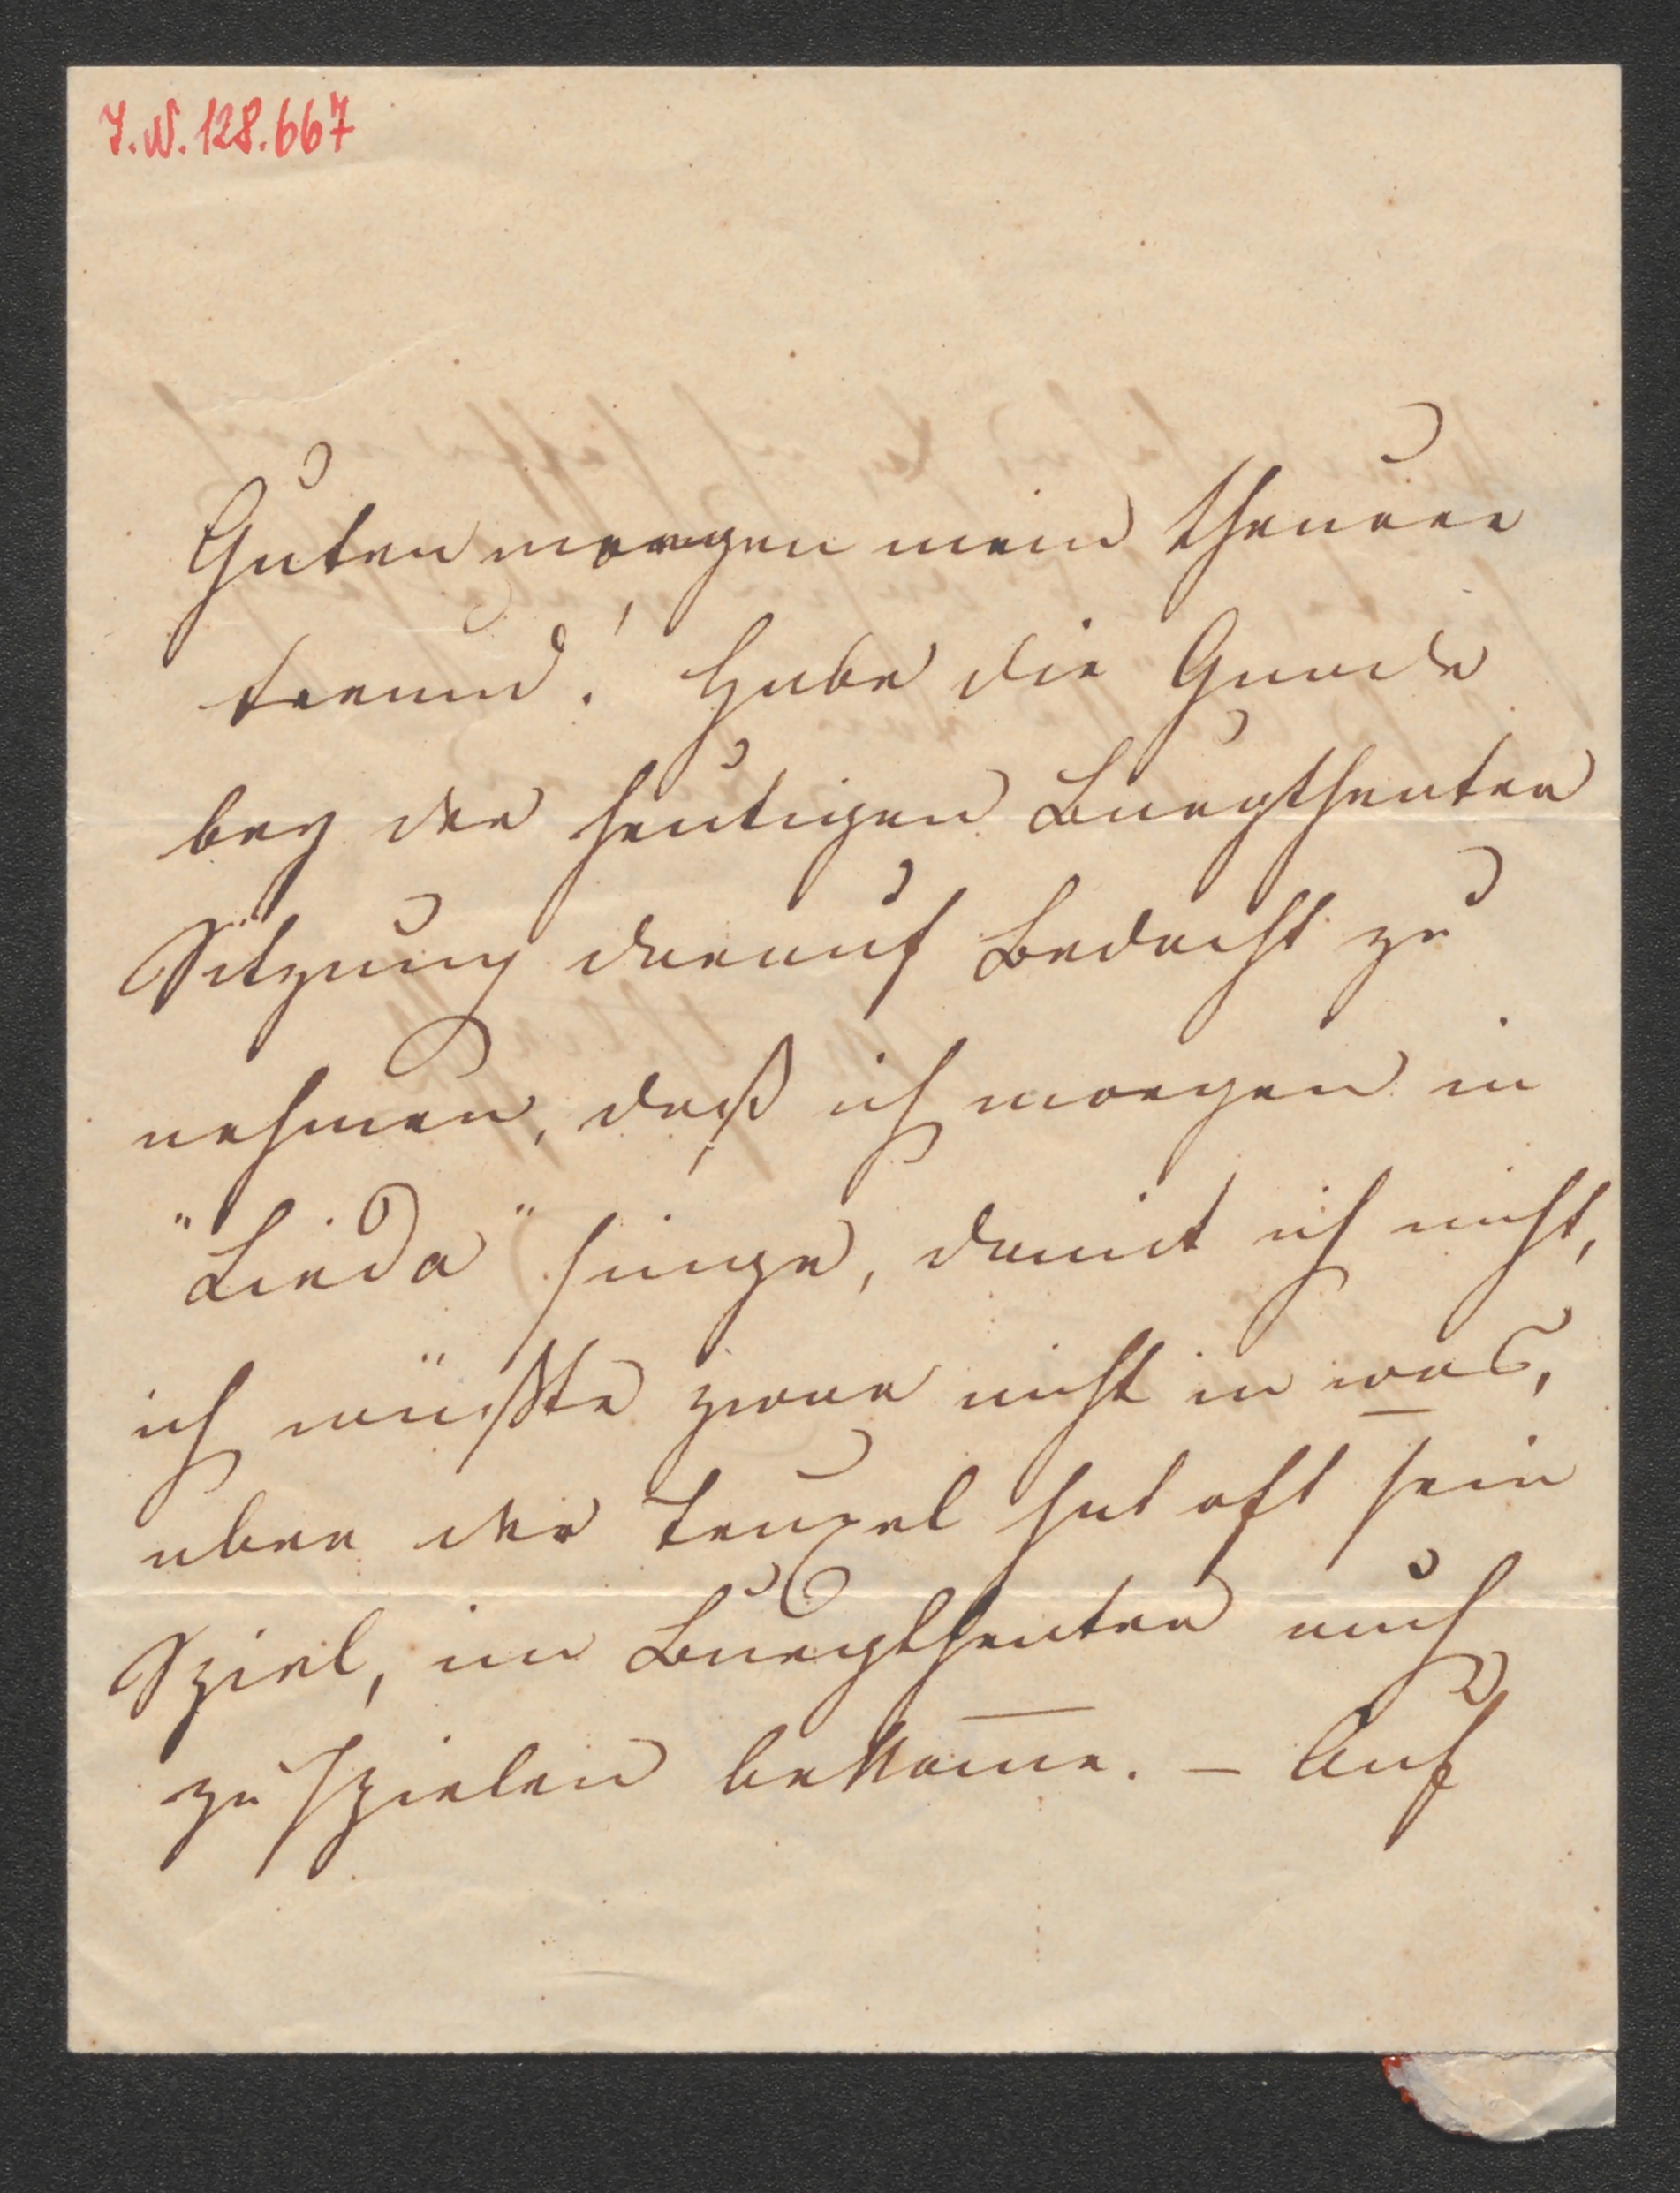 I.N. 128.667
Guten morgen mein theurer
Freund! Habe die Gnade
bey der heutigen Burgtheater
Sitzung darauf Bedacht zu
nehmen, daß ich morgen in
"Linda" singe, damit ich nicht,
ich wüßte zwar nicht in was,
aber der Teufel hat oft sein
Spiel, im Burgtheater auch
zu spielen bekom̅e. – Auf